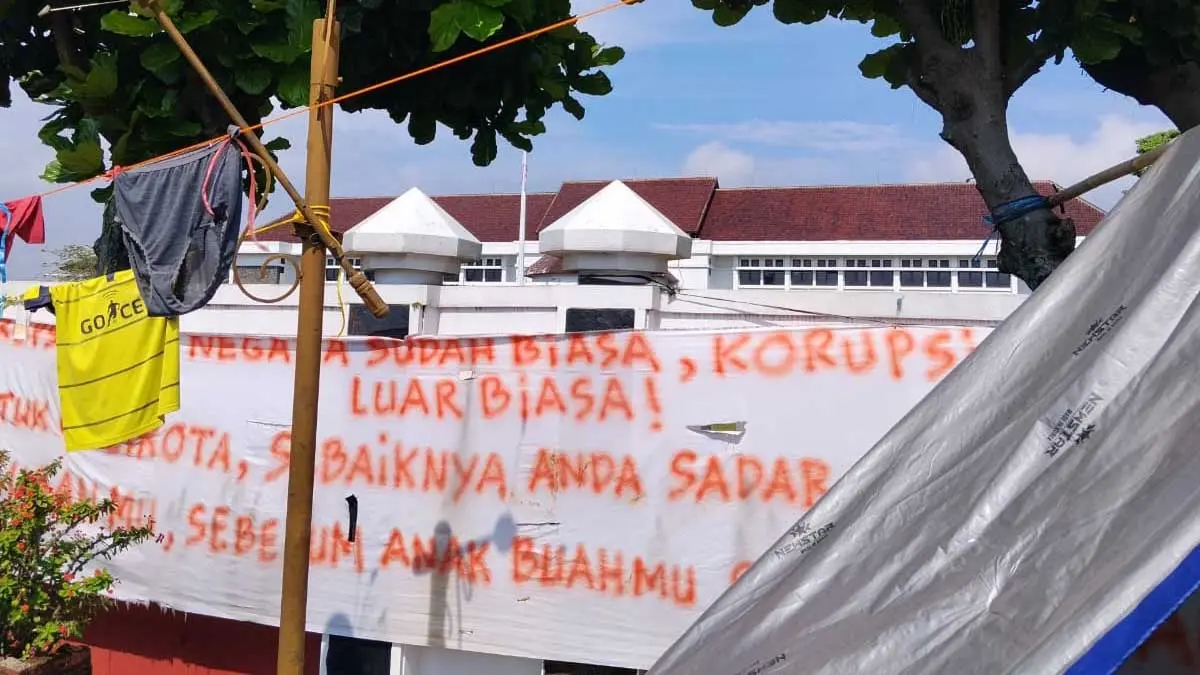 NEGARA SUDAH BIASA, KORUPSI
LUAR BIASA!
KOTA, SEBAIKNYA ANDA SADAR
SEBELUM ANAK BUAHMU
GO CE
NEWSTAR
NEWSTAR
NEWSTAR